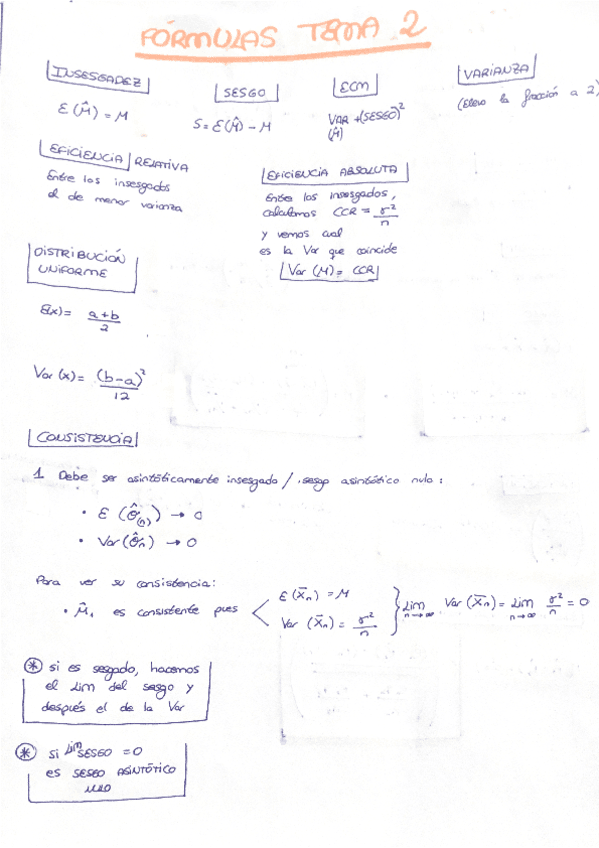 FÓRMULAS TEMA 2
INSESGADEZ
E(M̂) = M
SESGO
S = E(M̂) - M
ECM
VAR + (SESGO)²
(M̂)
VARIANZA
(Elevo la fracción a 2)
EFICIENCIA RELATIVA
Entre los insesgados
el de menor varianza
EFICIENCIA ABSOLUTA
Entre los insesgados,
calculamos CCR = σ²/n
y vemos cual
es la Var que coincide
Var (M) = CCR
DISTRIBUCIÓN
UNIFORME
E(x) = a+b/2
Var (x) = (b-a)²/12
CONSISTENCIA
1 Debe ser asintóticamente insesgado / sesgo asintótico nulo:
• E (θ̂(n)) → 0
• Var (θ̂n) → 0
Para ver su consistencia:
• M̂1 es consistente pues
E (X̄n) = M
Var (X̄n) = σ²/n
Lim n→∞ Var (X̄n) = Lim n→∞ σ²/n = 0
* si es sesgado, hacemos
el Lim del sesgo y
después el de la Var
* si Lim SESGO = 0
es SESGO ASINTÓTICO
NULO